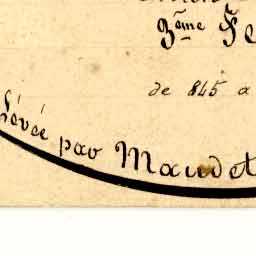 3ème Fe
de 845 a
Lévée par Maudet